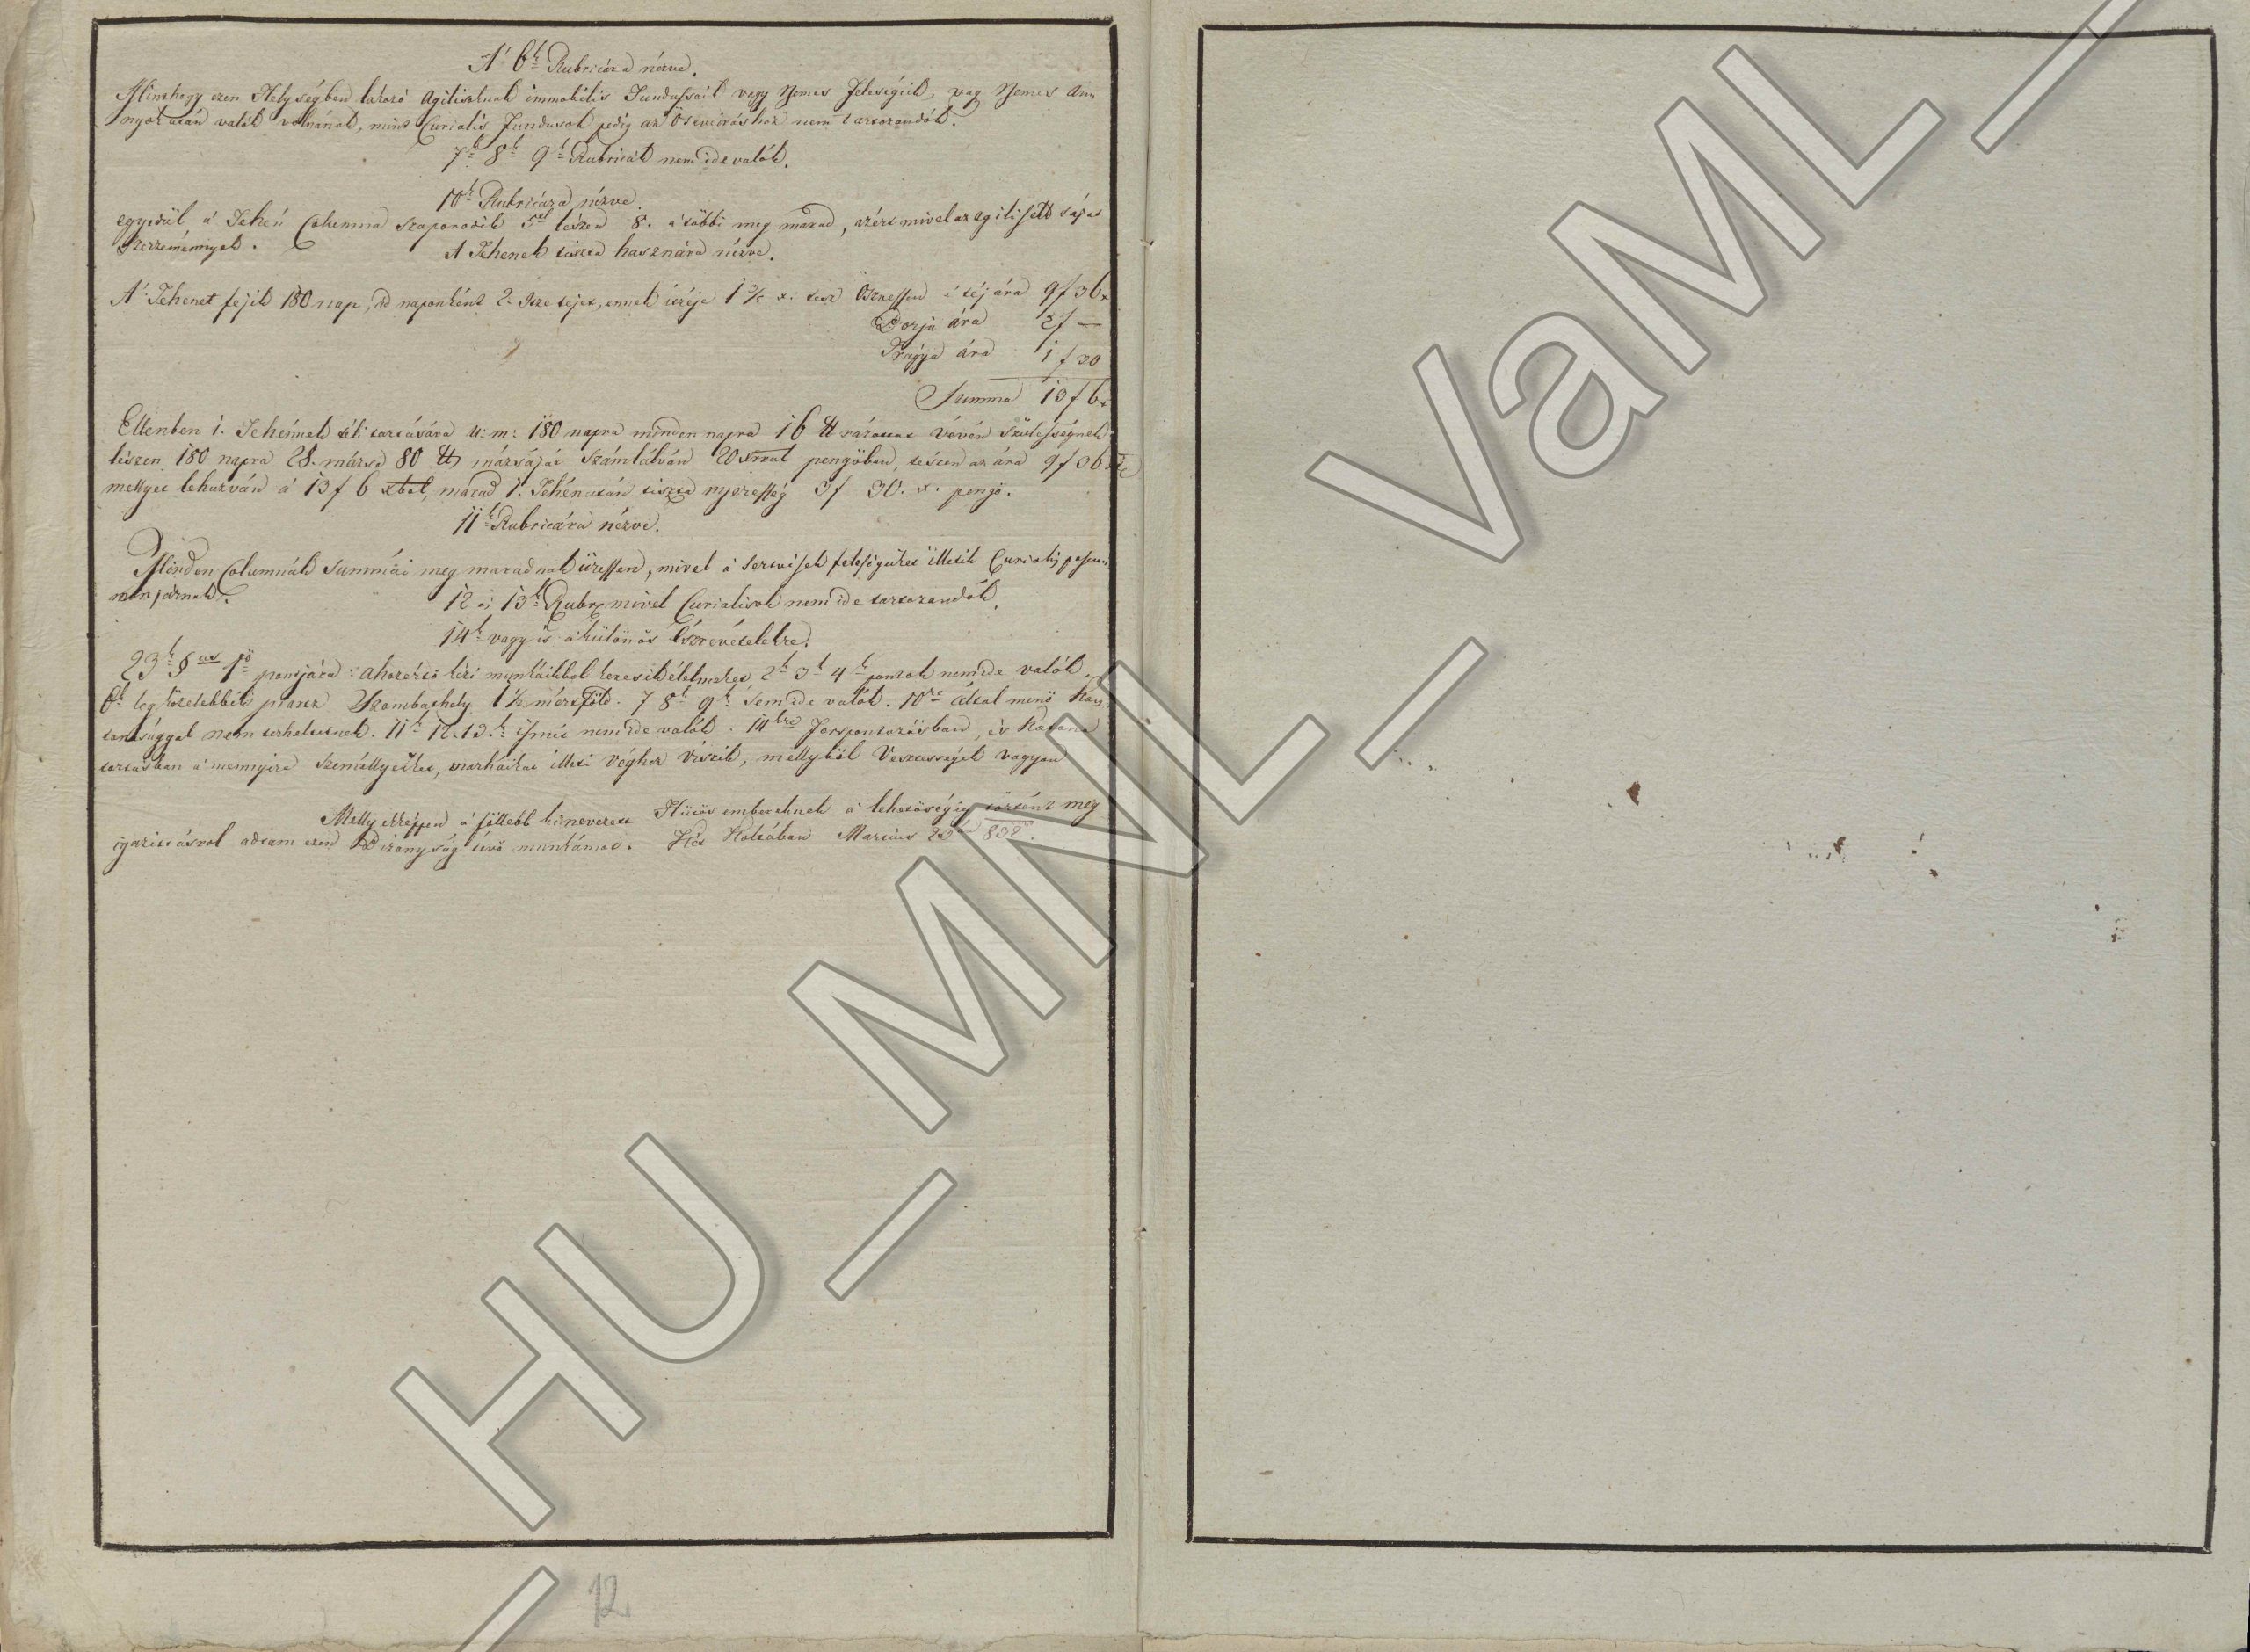 A' 6k Rubricára nézve.
Minthogy ezen Helységben lakozó Agiliseknek immobilis Fundussaik vagy Nemes Feleségeik, vagy Nemes Any
nyok után valók volnának, mint Curialis Fundusok pedig az Öszveiráshoz nem tartozandók.
7k 8k 9k Rubricák nem ide valók.
10k Rubricára nézve.
egyedül a' Tehén Columna szaporodik 5el lészen 8. a' többi meg marad, azért mivel az agilisek saját
szerzemények.
A Tehenek tiszta hasznára nézve.
A' Tehenet fejik 180 nap, ád naponként 2. Itze tejet, ennek itzéje 1 3/5 x. tesz Öszvessen a' téj ára 9f 36x
Borju ára 2f —
Trágya ára 1f 30
Summa 13f 6x
Ellenben 1. Tehénnek téli tartására u: m: 180 napra minden napra 16 ℔ rázottat vévén szükségesnek
lészen 180 napra 28. mázsa 80 ℔ mázsáját számlálván 20 xrral pengőben, teszen az ára 9f 36 x
mellyet lehuzván a' 13f 6 xból, marad 1. Tehén után tiszta nyeresség 3f 30. x. pengő.
11k Rubricára nézve.
Minden Columnák Summái meg maradnak üressen, mivel a'
nem járnak.
12 és 13k Rubr mivel Curialisok nem ide tartozandók.
14k vagy is a' különös Észrevételekre.
23k §us 1ő pontjára: kézi munkáikbol keresik élelmeket 2k 3k 4k pontok nem ide valók.
6k leg közelebbik piartz Szombathely 1 1/2 mértföld. 7 8k 9k sem ide valók. 10re Által menő Kato
tonasággal nem terheltetnek. 11k 12. 13.k ismét nem ide valók. 14kre Forspontozásban, és Katona
tartásban a' mennyire személlyeiket, marháikat illeti véghez viszik, mellyből Veszteségek vagyon
Melly eképpen a' föllebb kinevezett Hütös embereknek a' lehetőségig történt meg
igazitásrol adtam ezen Bizonyság tévő munkámat. Hét Martius 23án 832.
12
HU_MNL_VaML_